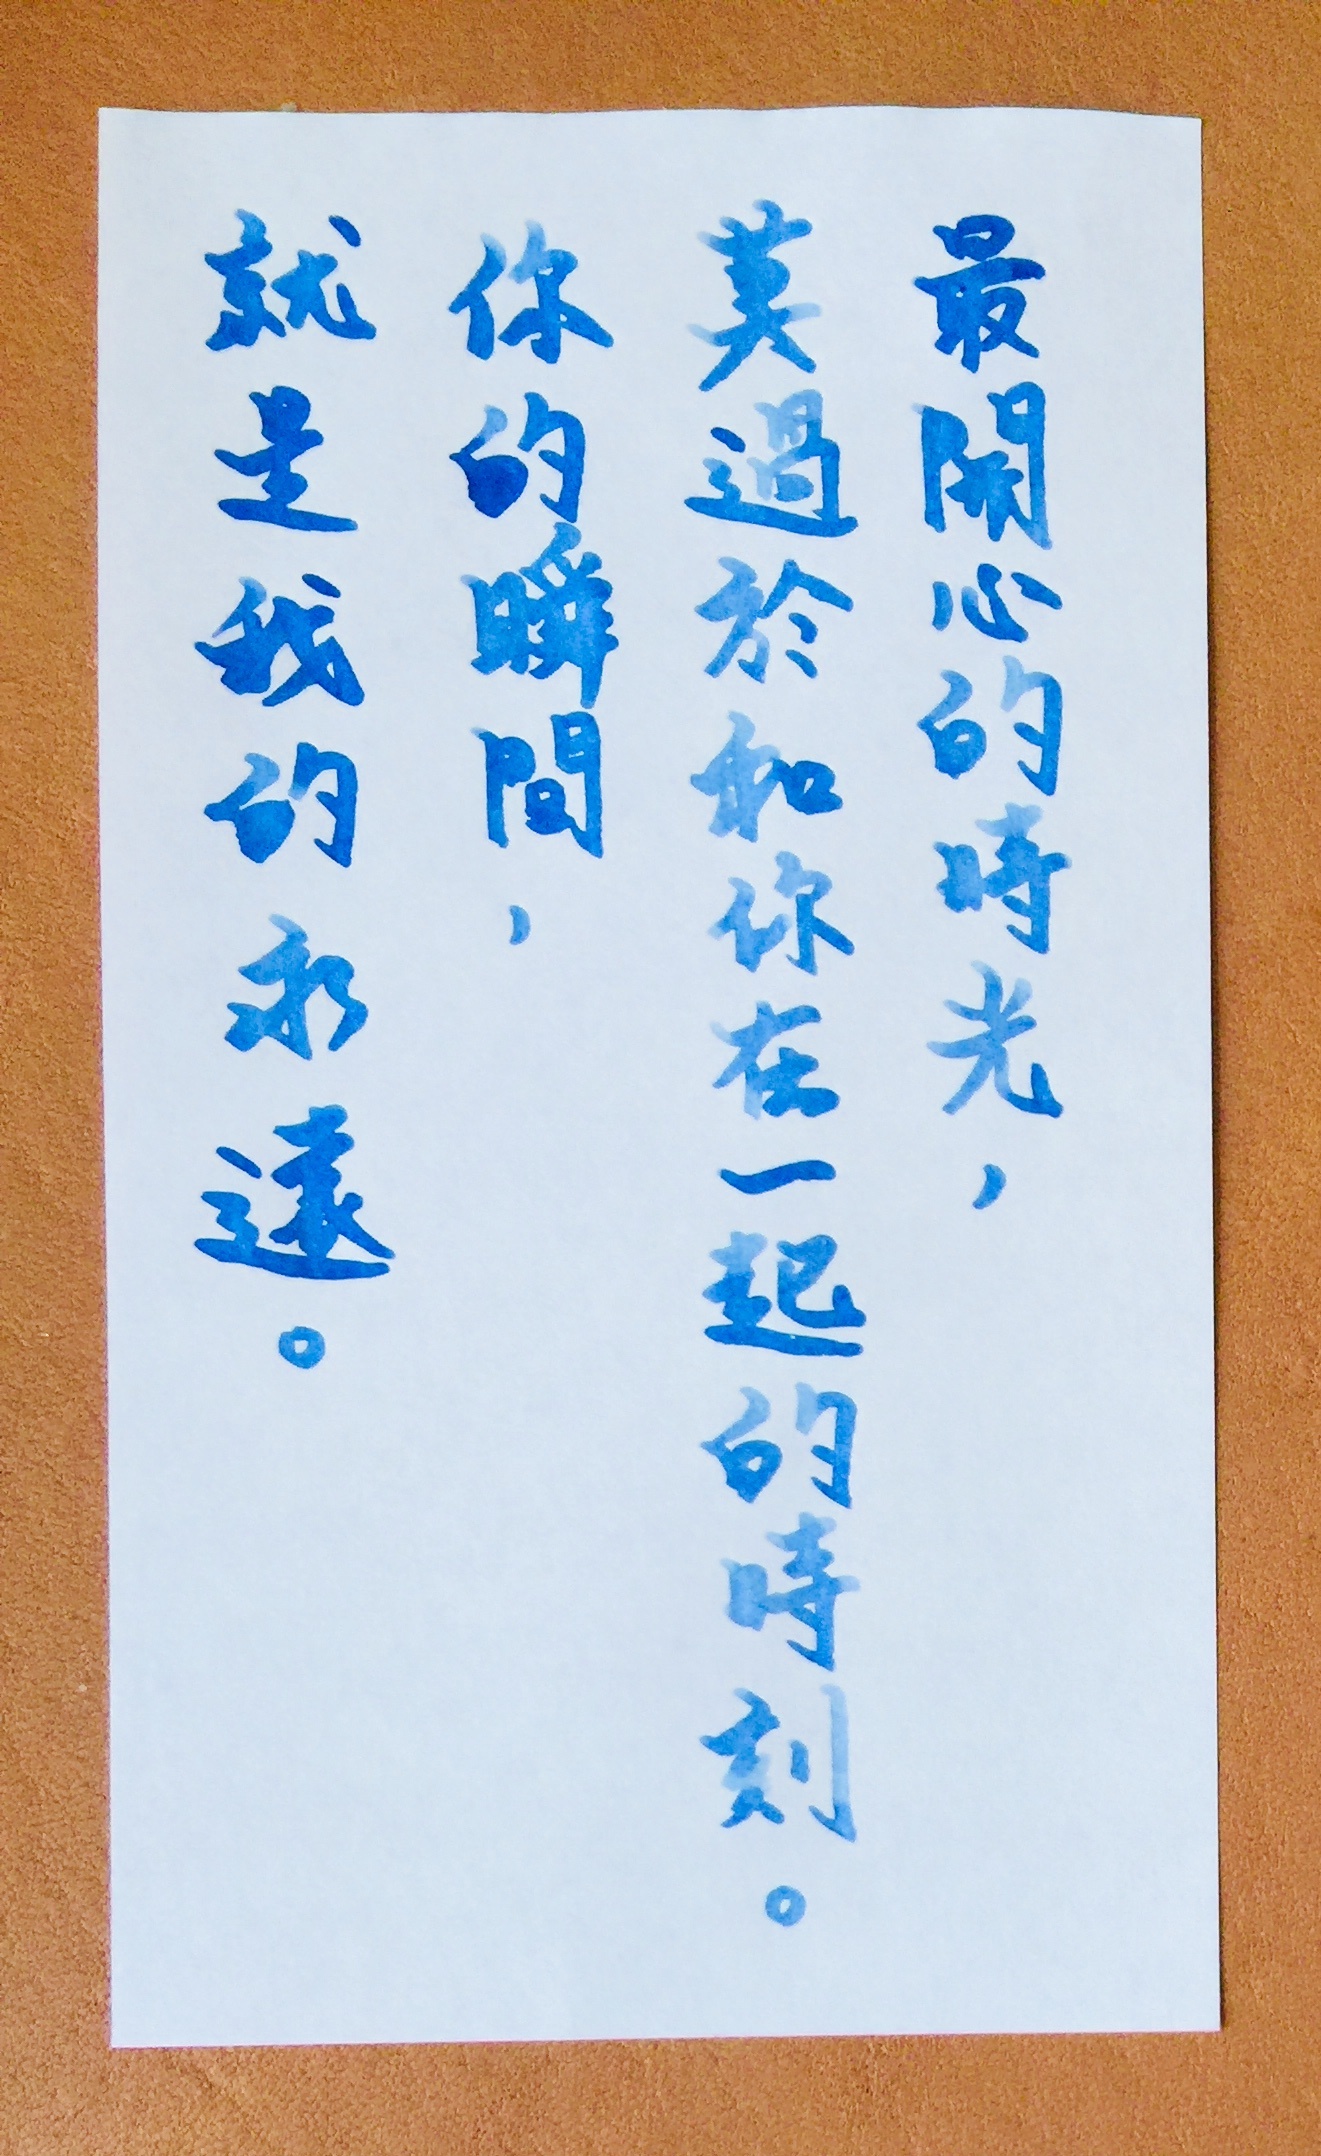 最開心的時光，
莫過於和你在一起的時刻。
你的瞬間，
就是我的永遠。